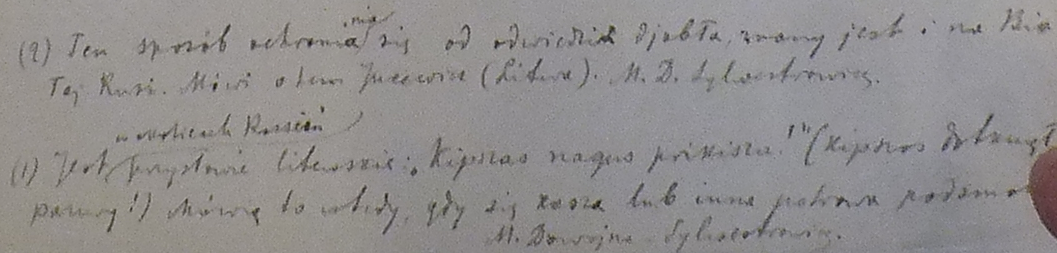 (2) Ten sposób ochrania nia się od odwiedzin djabła, znany jest i na Bia
łej Rusi. Mówi o tem Jucewicz (Litwa). M. D. Sylwestrowicz.
w okolicach Rossień
(1) Jest przysłowie litewskie: „Kipszas nagus prikiszu!" (Kipszas dotknął
pazury!) Mówią to wtedy, gdy się kasza lub inna potrawa
M. Dowojna-Sylwestrowicz.